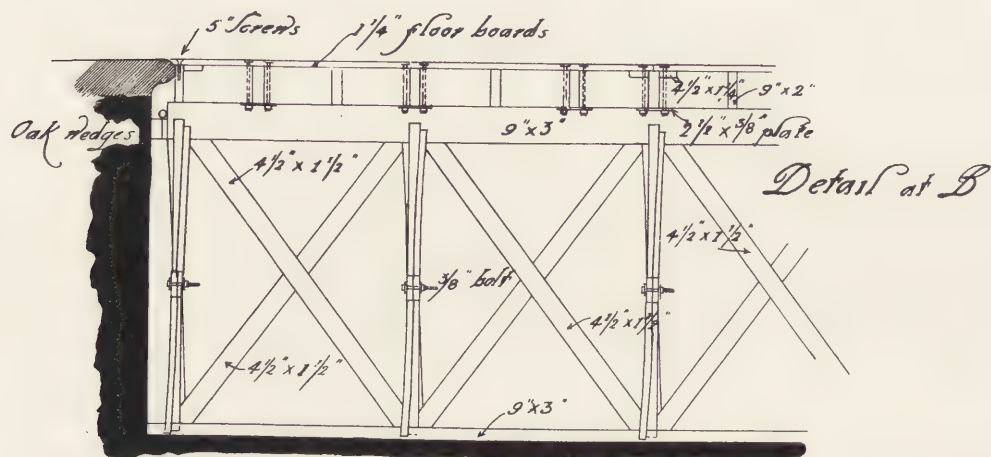 5" Screws
1 1/4" floor boards
4 1/2" x 1 1/4"
9" x 2"
Oak wedges
9" x 3"
2 1/2" x 3/8" plate
4 1/2" x 1 1/2"
Detail at B
4 1/2" x 1 1/2"
3/8" bolt
4 1/2" x 1 1/2"
4 1/2" x 1 1/2"
9" x 3"